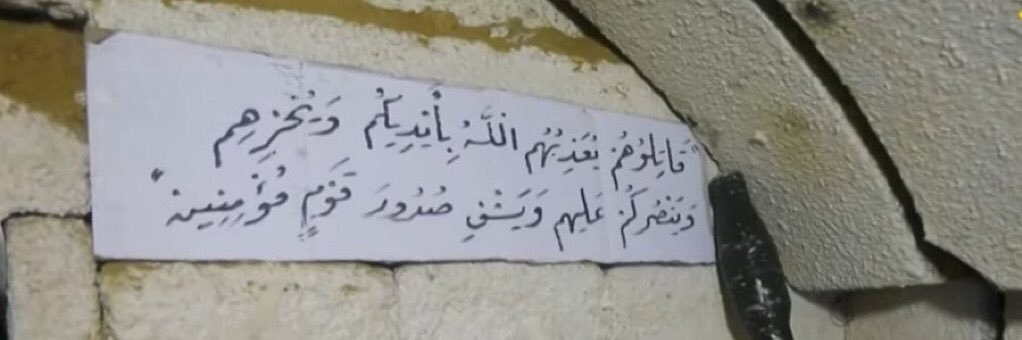 "قَاتِلُوهُمْ يُعَذِّبْهُم اللَّهُ بِأَيْدِيكُمْ وَيُخْزِهِم
وَيَنْصُرْكُمْ عَلَيْهِم وَيَشْفِ صُدُورَ قَوْمٍ مُؤْمِنِين"